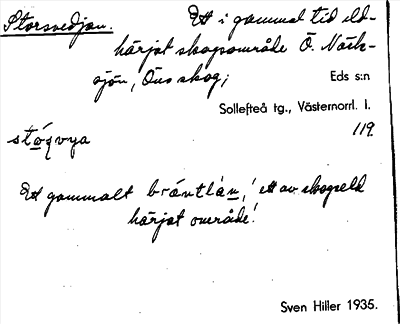 Storsvedjan. Ett i gammal tid eld-
härjat skogsområde Ö. Näck-
sjön, Öns skog;
Eds s:n
Sollefteå tg., Västernorrl. l.
119.
stóqvya
Ett gammalt bräntlán, ' ett av skogseld
härjat område'.
Sven Hiller 1935.